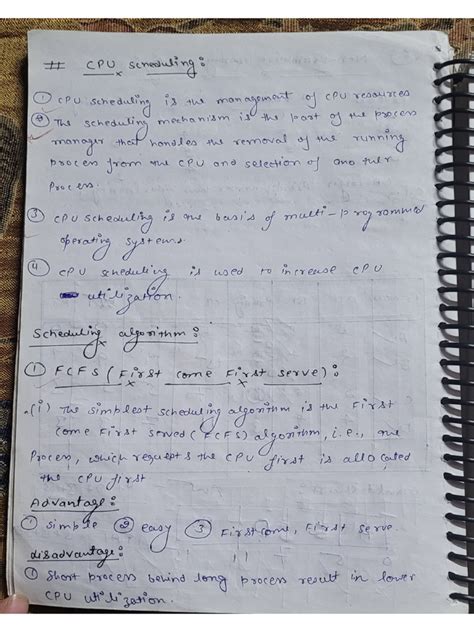 # CPU scheduling :
① CPU scheduling is the management of CPU resources
② The scheduling mechanism is the part of the process
manager that handles the removal of the running
process from the CPU and selection of another
process.
③ CPU scheduling is the basis of multi-programmed
operating systems.
④ CPU scheduling is used to increase CPU
utilization.
Scheduling algorithm :
① FCFS (First come First serve) :
(i) The simplest scheduling algorithm is the First
come First served (FCFS) algorithm, i.e., the
Process, which request s the CPU first is allocated
the CPU first
Advantage :
① simple ② easy ③ First come, First serve.
disadvantage :
① Short process behind long process result in lower
CPU utilization.